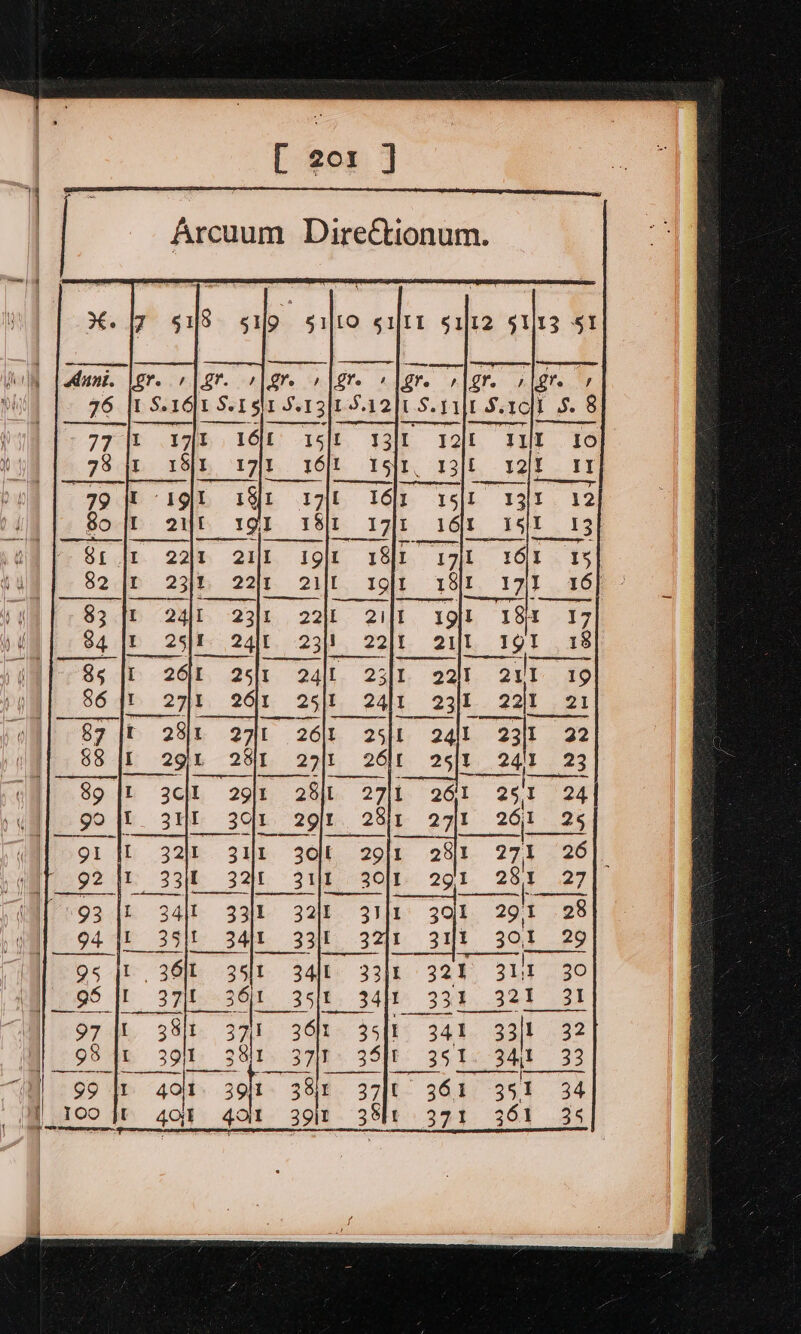 [ 201 ]
Arcuum Directionum.
♓. 7 51 8 51 9 51 10 51 11 51 12 51 13 51
Anni. gr. ′ gr. ′ gr. ′ gr. ′ gr. ′ gr. ′ gr. ′
76 1 S.16 1 S.15 1 S.13 1 S.12 1 S.11 1 S.10 1 S. 8
77 1 17 1 16 1 15 1 13 1 12 1 11 1 10
78 1 18 1 17 1 16 1 15 1 13 1 12 1 11
79 1 19 1 18 1 17 1 16 1 15 1 13 1 12
80 1 21 1 19 1 18 1 17 1 16 1 15 1 13
81 1 22 1 21 1 19 1 18 1 17 1 16 1 15
82 1 23 1 22 1 21 1 19 1 18 1 17 1 16
83 1 24 1 23 1 22 1 21 1 19 1 18 1 17
84 1 25 1 24 1 23 1 22 1 21 1 19 1 18
85 1 26 1 25 1 24 1 23 1 22 1 21 1 19
86 1 27 1 26 1 25 1 24 1 23 1 22 1 21
87 1 28 1 27 1 26 1 25 1 24 1 23 1 22
88 1 29 1 28 1 27 1 26 1 25 1 24 1 23
89 1 30 1 29 1 28 1 27 1 26 1 25 1 24
90 1 31 1 30 1 29 1 28 1 27 1 26 1 25
91 1 32 1 31 1 30 1 29 1 28 1 27 1 26
92 1 33 1 32 1 31 1 30 1 29 1 28 1 27
93 1 34 1 33 1 32 1 31 1 30 1 29 1 28
94 1 35 1 34 1 33 1 32 1 31 1 30 1 29
95 1 36 1 35 1 34 1 33 1 32 1 31 1 30
96 1 37 1 36 1 35 1 34 1 33 1 32 1 31
97 1 38 1 37 1 36 1 35 1 34 1 33 1 32
98 1 39 1 38 1 37 1 36 1 35 1 34 1 33
99 1 40 1 39 1 38 1 37 1 36 1 35 1 34
100 1 40 1 40 1 39 1 38 1 37 1 36 1 35